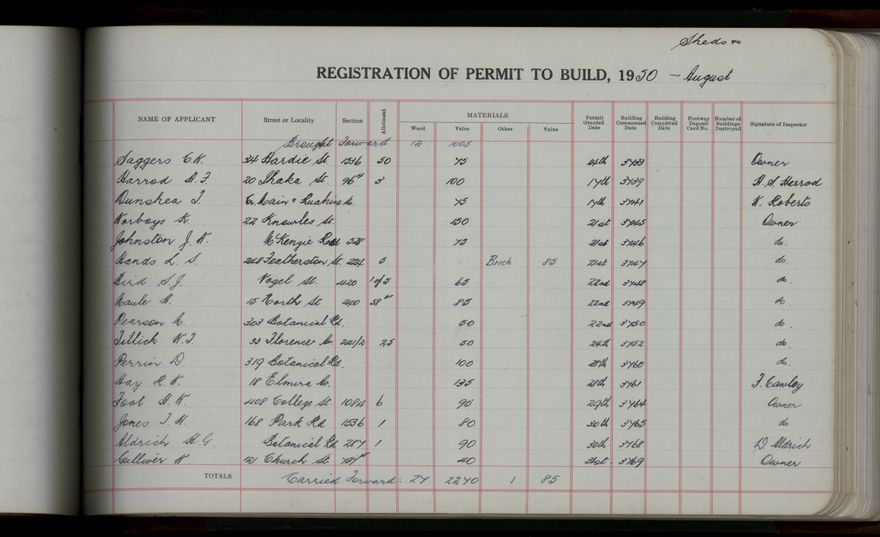 Sheds &c
REGISTRATION OF PERMIT TO BUILD, 1950 - August
NAME OF APPLICANT Street or Locality Section Allotment MATERIALS Permit Granted Date Building Commenced Date Building Completed Date Footway Deposit Card No. Number of Buildings Destroyed Signature of Inspector
Wood Value Other Value
Brought Forward 12 1065
Saggers C.K. 24 Hardie St. 1536 50 75 3733 Owner
Harrod A.J. 20 Shaka St. 3 100 17th 3739 H S Harrod
Dunshea J. Cr. Main & 75 17th 3741 K. Roberts
Korboys K. 22 Knowles St. 150 21st 3745 Owner
Johnston J.K. McKenzie Road 328 75 21st 3746 do.
Hands L.S. 248 Featherston St. 224 5 Brick 85 21st 3747 do.
Bird S.J. Vogel St. 420 1 of 5 65 22nd 3748 do.
Maule A. 15 North St. 240 85 22nd 3749 do.
Pearson C. 303 Botanical Rd. 50 22nd 3750 do.
Tillick K.J. 33 Florence Av. 241/2 25 50 24th 3752 do.
Perrin D. 319 Botanical Rd. 100 28th 3760 do.
Hay R.K. 18 Elmira Av. 135 28th 3761 J. Cawley
Foot A.K. 408 College St. 1084 6 95 29th 3764 Owner
Jones J.H. 168 Park Rd 1536 1 80 30th 3765 do
Aldrich H.G. Botanical Rd 287 1 90 30th 3768 D Aldrich
Gulliver K 21 Church St 40 31st 3769 Owner
TOTALS Carried Forward: 27 2240 1 85